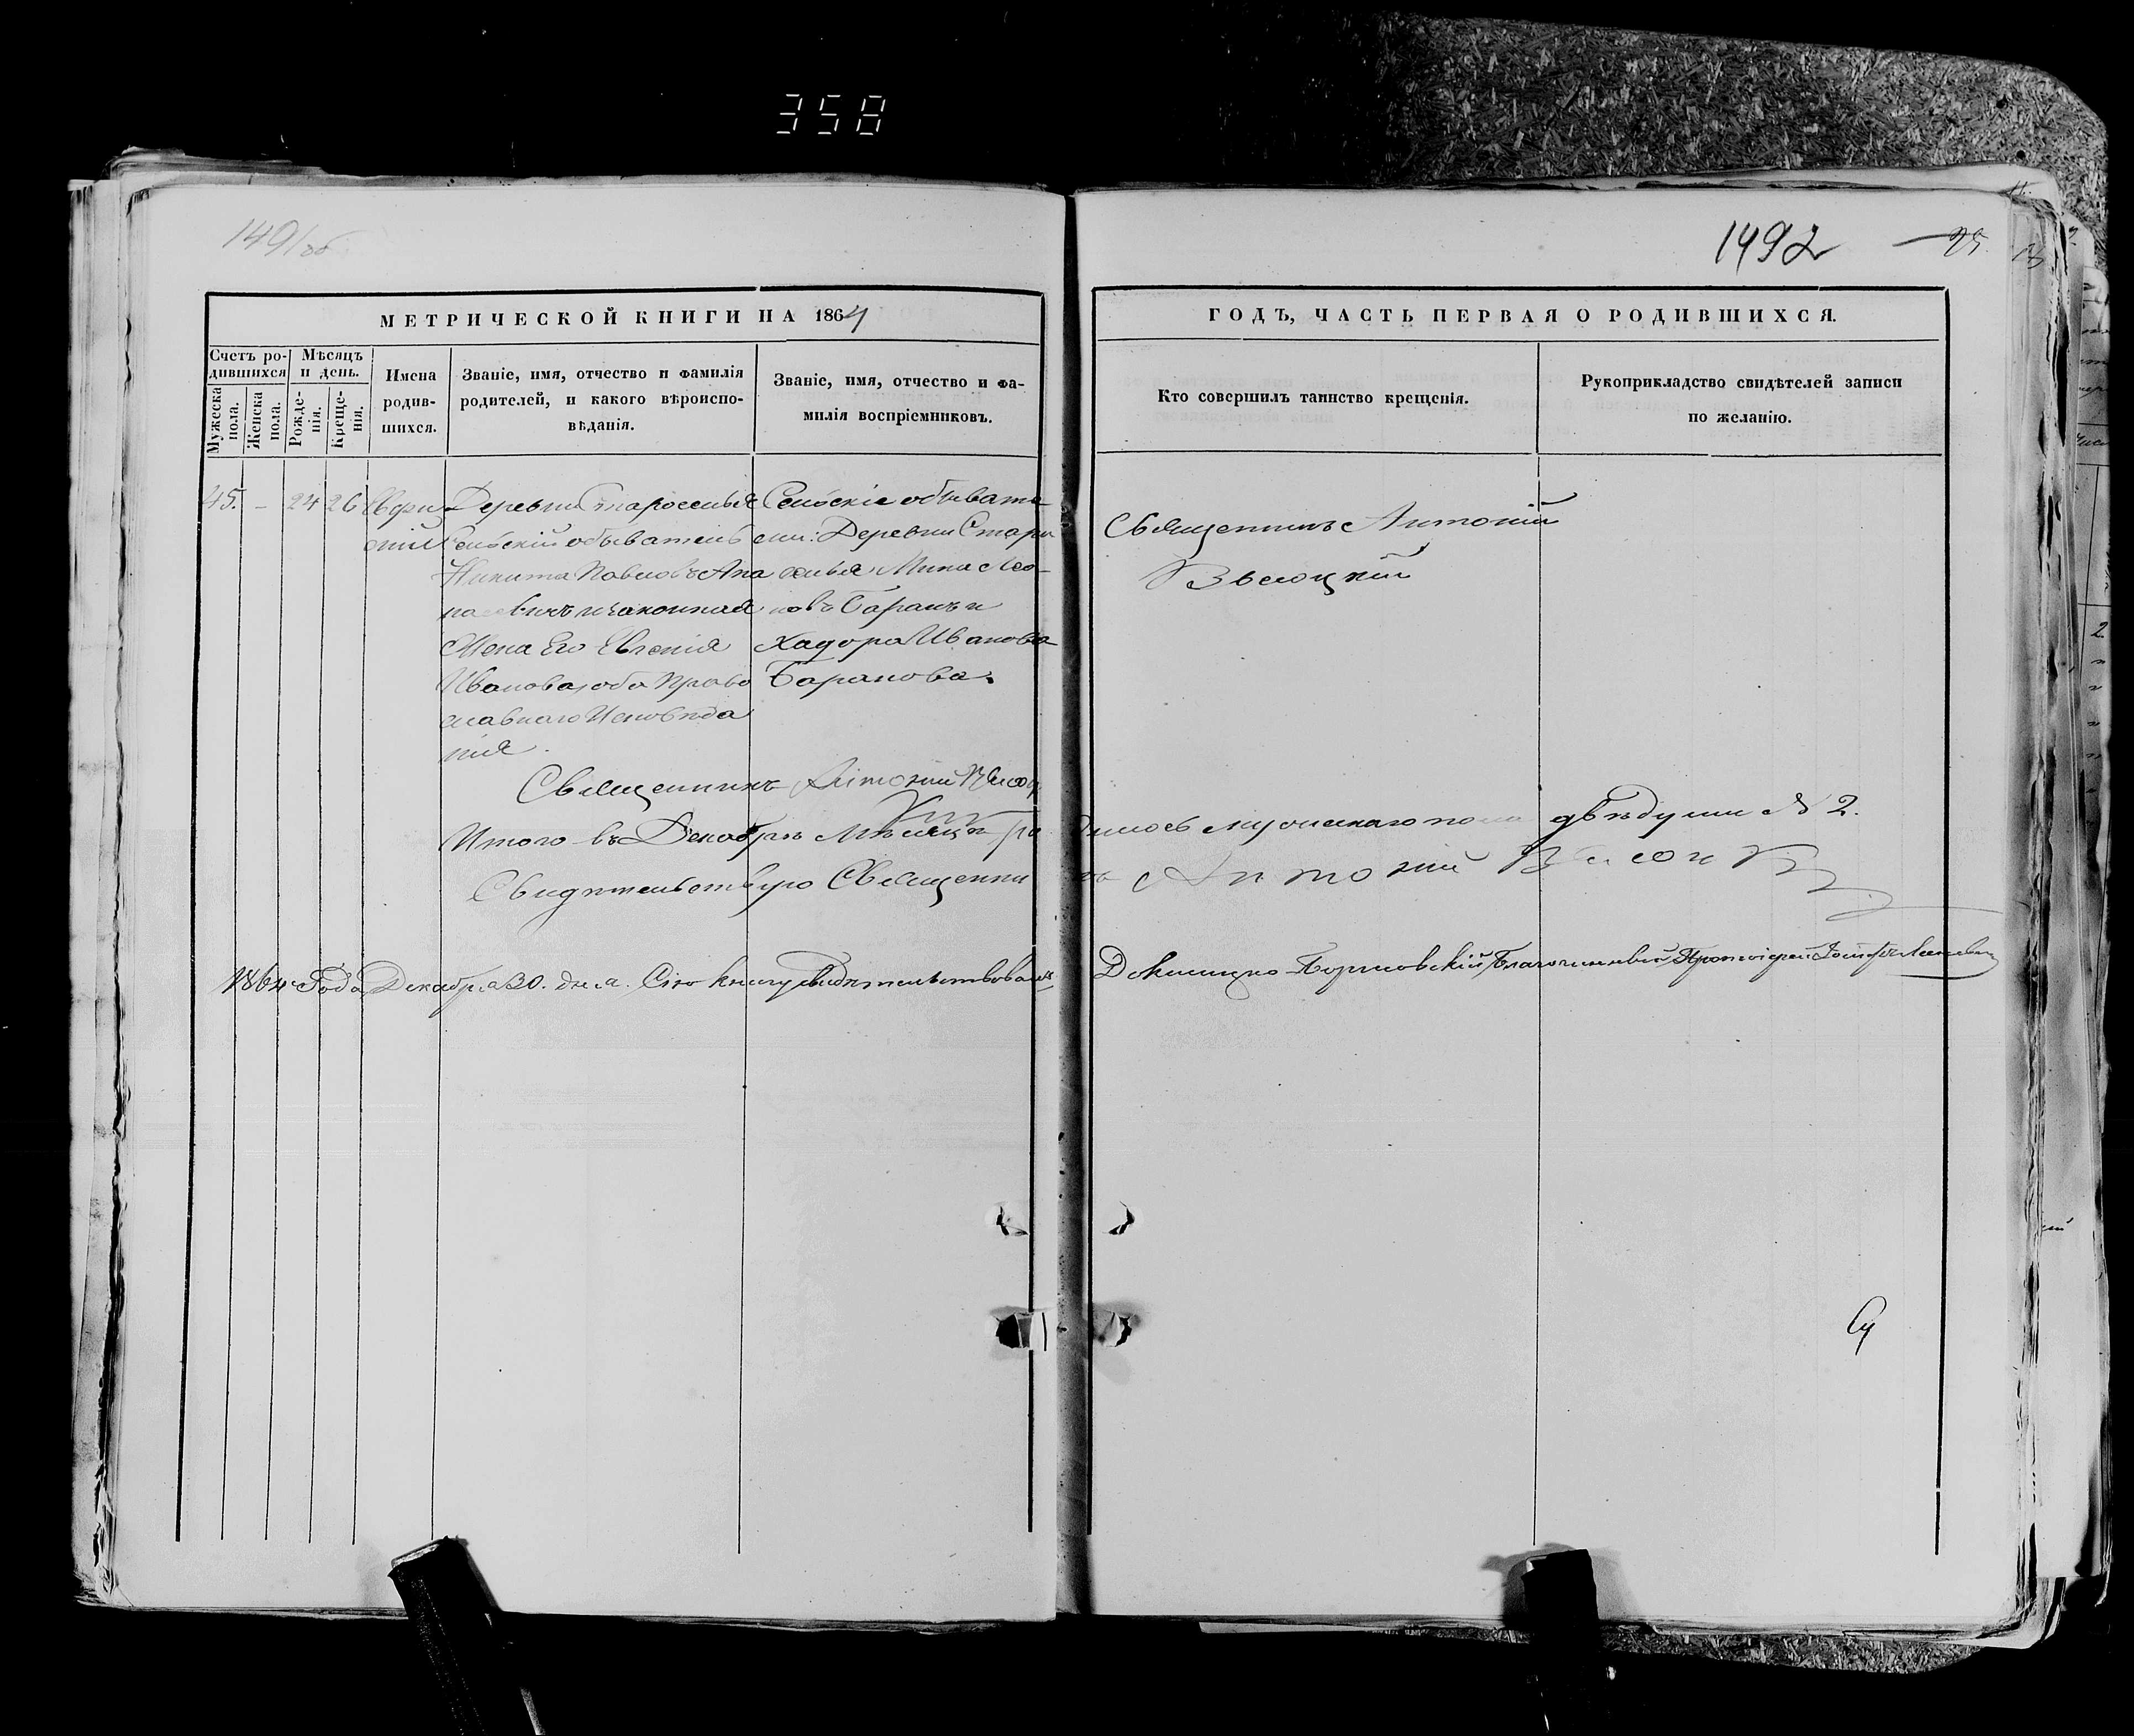 358
149/об
1492
25
МЕТРИЧЕСКОЙ КНИГИ НА 1864
ГОДЪ, ЧАСТЬ ПЕРВАЯ О РОДИВШИХСЯ.
Счетъ ро-
дившихся
Мужеска
пола.
Женска
пола.
Мѣсяцъ
и день.
Рожде-
нія.
Креще-
нія.
Имена
родив-
шихся.
Званіе, имя, отчество и фамилія
родителей, и какого вѣроиспо-
вѣданія.
Званіе, имя, отчество и фа-
милія воспріемниковъ.
Кто совершилъ таинство крещенія.
Рукоприкладство свидѣтелей записи
по желанію.
45. – 24 26
Деревни Староселья
Сельскій обыватель
Никита Павловъ Апа
насевичъ и законная
Жена Его Евгенія
Иванова, оба Право
славнаго Исповѣда
нія.
Сельскіе обывате
ли: Деревни Старо
селья Мина Лео-
новъ Баранъ и
Хадора Иванова
Баранова.
Священникъ Антоній
Священникъ Антоній
Итого въ Декабрѣ Мѣсяцѣ ро
дилось мужескаго пола двѣ души № 2.
Свидѣтельствую Священни
къ Антоній
1864 Года Декабря 30. дня. Сію книгу свидѣтельствовалъ
Докшицко-Борисовскій Благочинный Протоіерей